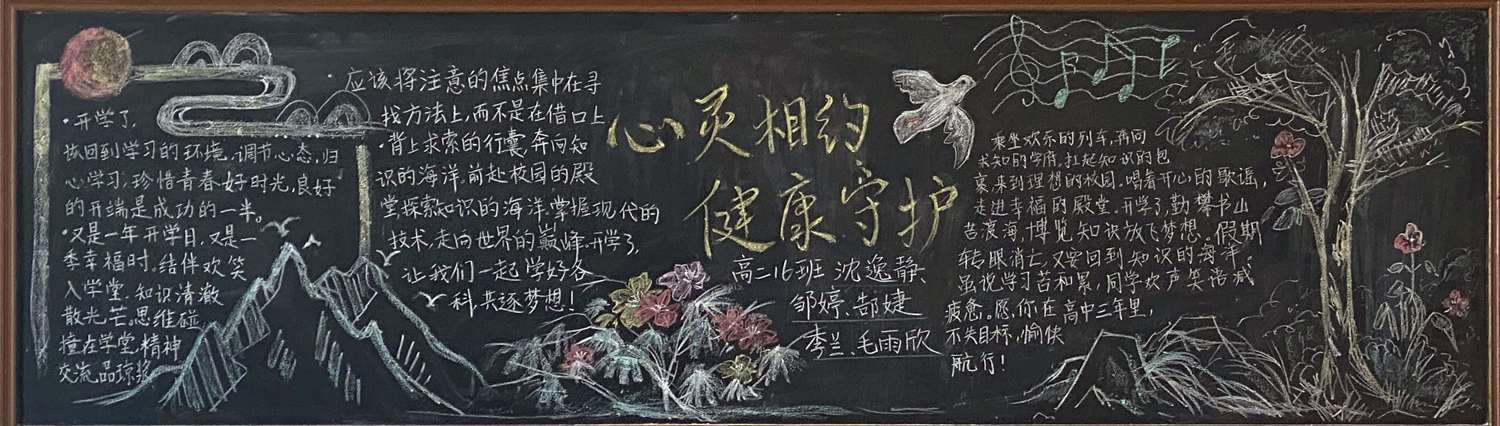 ·开学了,
该回到学习的环境,调节心态,归
心学习,珍惜青春好时光,良好
的开端是成功的一半。
·又是一年开学日,又是一
季幸福时。结伴欢笑
入学堂,知识清澈
散光芒。思维碰
撞在学堂,精神
交流,品琼浆
·应该将注意的焦点集中在寻
找方法上,而不是在借口上
·背上求索的行囊,奔向知
识的海洋。前赴校园的殿
堂探索知识的海洋。掌握现代的
技术,走向世界的巅峰。开学了,
让我们一起学好各
科,共逐梦想!
心灵相约
健康守护
高二16班 沈逸静
邹婷、郜婕
李兰、毛雨欣
乘坐欢乐的列车,再向
求知的学府,扛起知识的包
裹,来到理想的校园。唱着开心的歌谣,
走进幸福的殿堂。开学了,勤攀书山
苦渡海,博览知识放飞梦想。假期
转眼消亡,又要回到知识的海洋;
虽说学习苦和累,同学欢声笑语减
疲惫。愿你在高中三年里,
不失目标,愉快
航行!